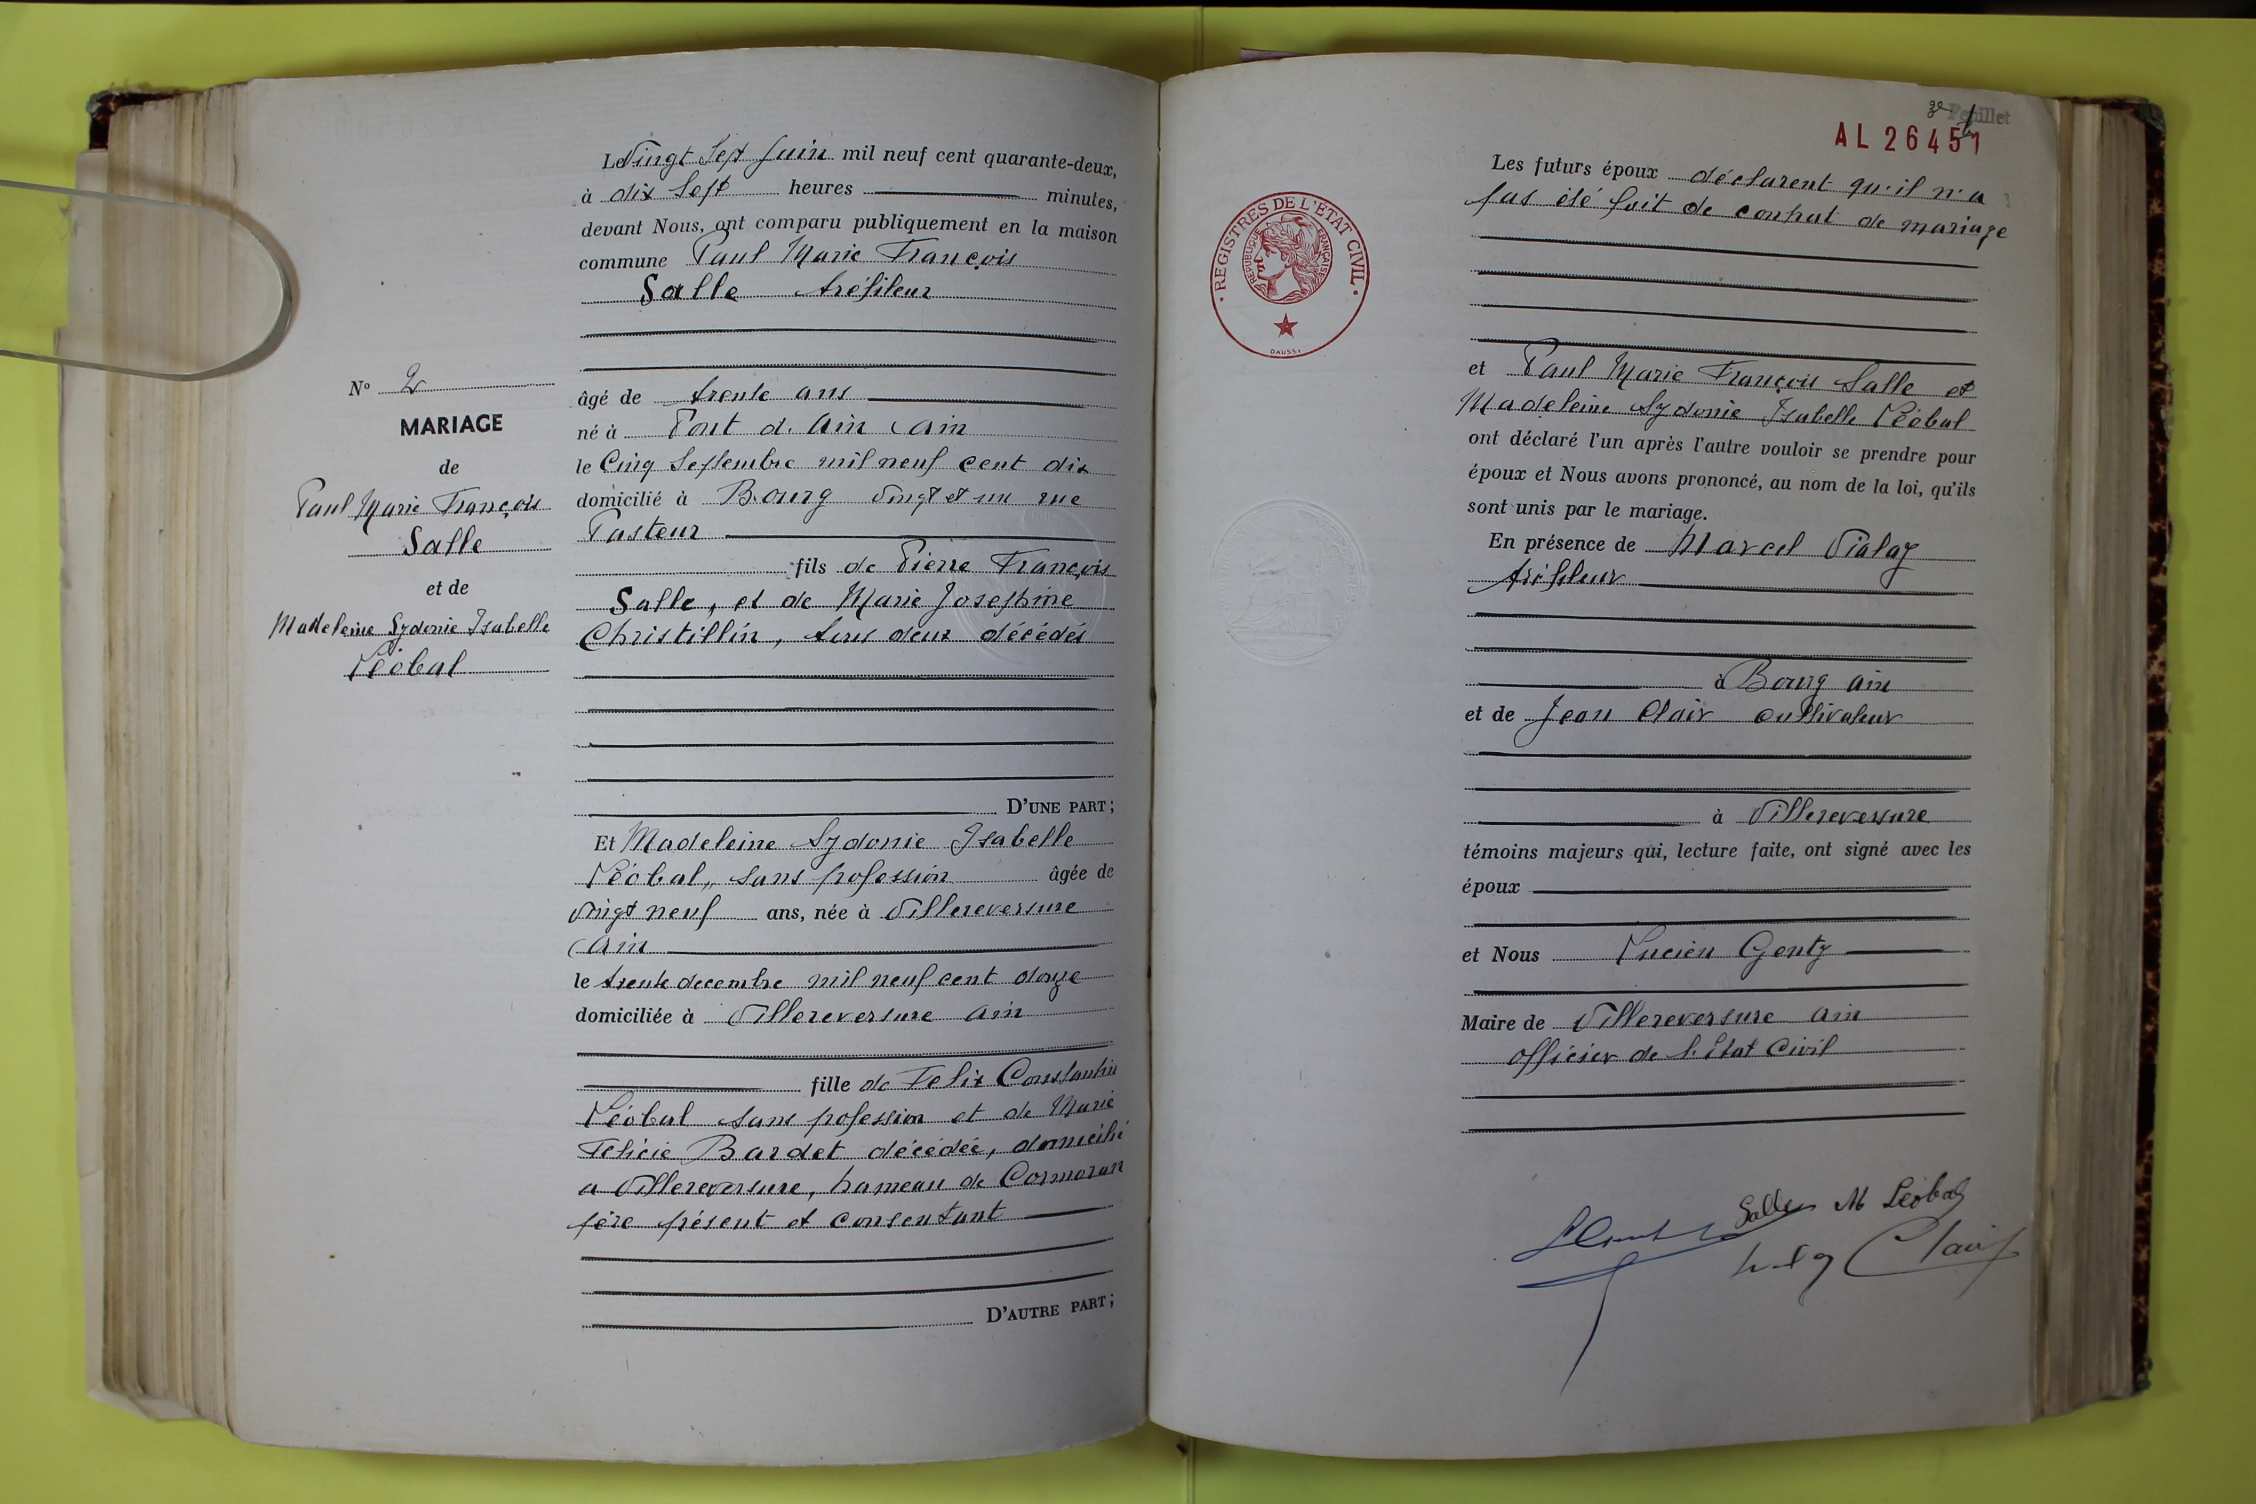 Le Vingt Sept Juin mil neuf cent quarante-deux,
à dix Sept heures minutes,
devant Nous, ont comparu publiquement en la maison
commune Paul Marie François
Salle tréfileur
âgé de trente ans
né à Pont d'Ain (Ain
le Cinq Septembre mil neuf cent dix
domicilié à Bourg Vingt et un rue
Pasteur
fils de Pierre François
Salle, et de Marie Josephine
Christillin, tous deux décédés
D'UNE PART;
Et Madeleine Sydonie Isabelle
Léobal, sans profession âgée de
Vingt neuf ans, née à Villereversure
(Ain
le trente decembre mil neuf cent douze
domiciliée à Villereversure Ain
fille de Felix Constantin
Léobal sans profession et de Marie
Felicie Bardet décédée, domicilié
a Villereversure, hameau de Cormoran
père présent et consentant
D'AUTRE PART;
N° 2
MARIAGE
de
Paul Marie François
Salle
et de
Madeleine Sydonie Isabelle
Léobal
Feuillet
AL 26451
REGISTRES DE L'ETAT CIVIL
REPUBLIQUE FRANÇAISE
DAUSSY
Les futurs époux déclarent qu'il n'a
pas été fait de contrat de mariage
et Paul Marie François Salle et
Madeleine Sydonie Isabelle Léobal
ont déclaré l'un après l'autre vouloir se prendre pour
époux et Nous avons prononcé, au nom de la loi, qu'ils
sont unis par le mariage.
En présence de Marcel Vialay
tréfileur
à Bourg Ain
et de Jean Clair cultivateur
à Villereversure
témoins majeurs qui, lecture faite, ont signé avec les
époux
et Nous Lucien Genty
Maire de Villereversure Ain
officier de l'Etat Civil
Salle M Léobal
Clair